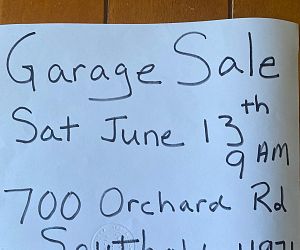 Garage Sale
Sat June 13th
9 AM
700 Orchard Rd